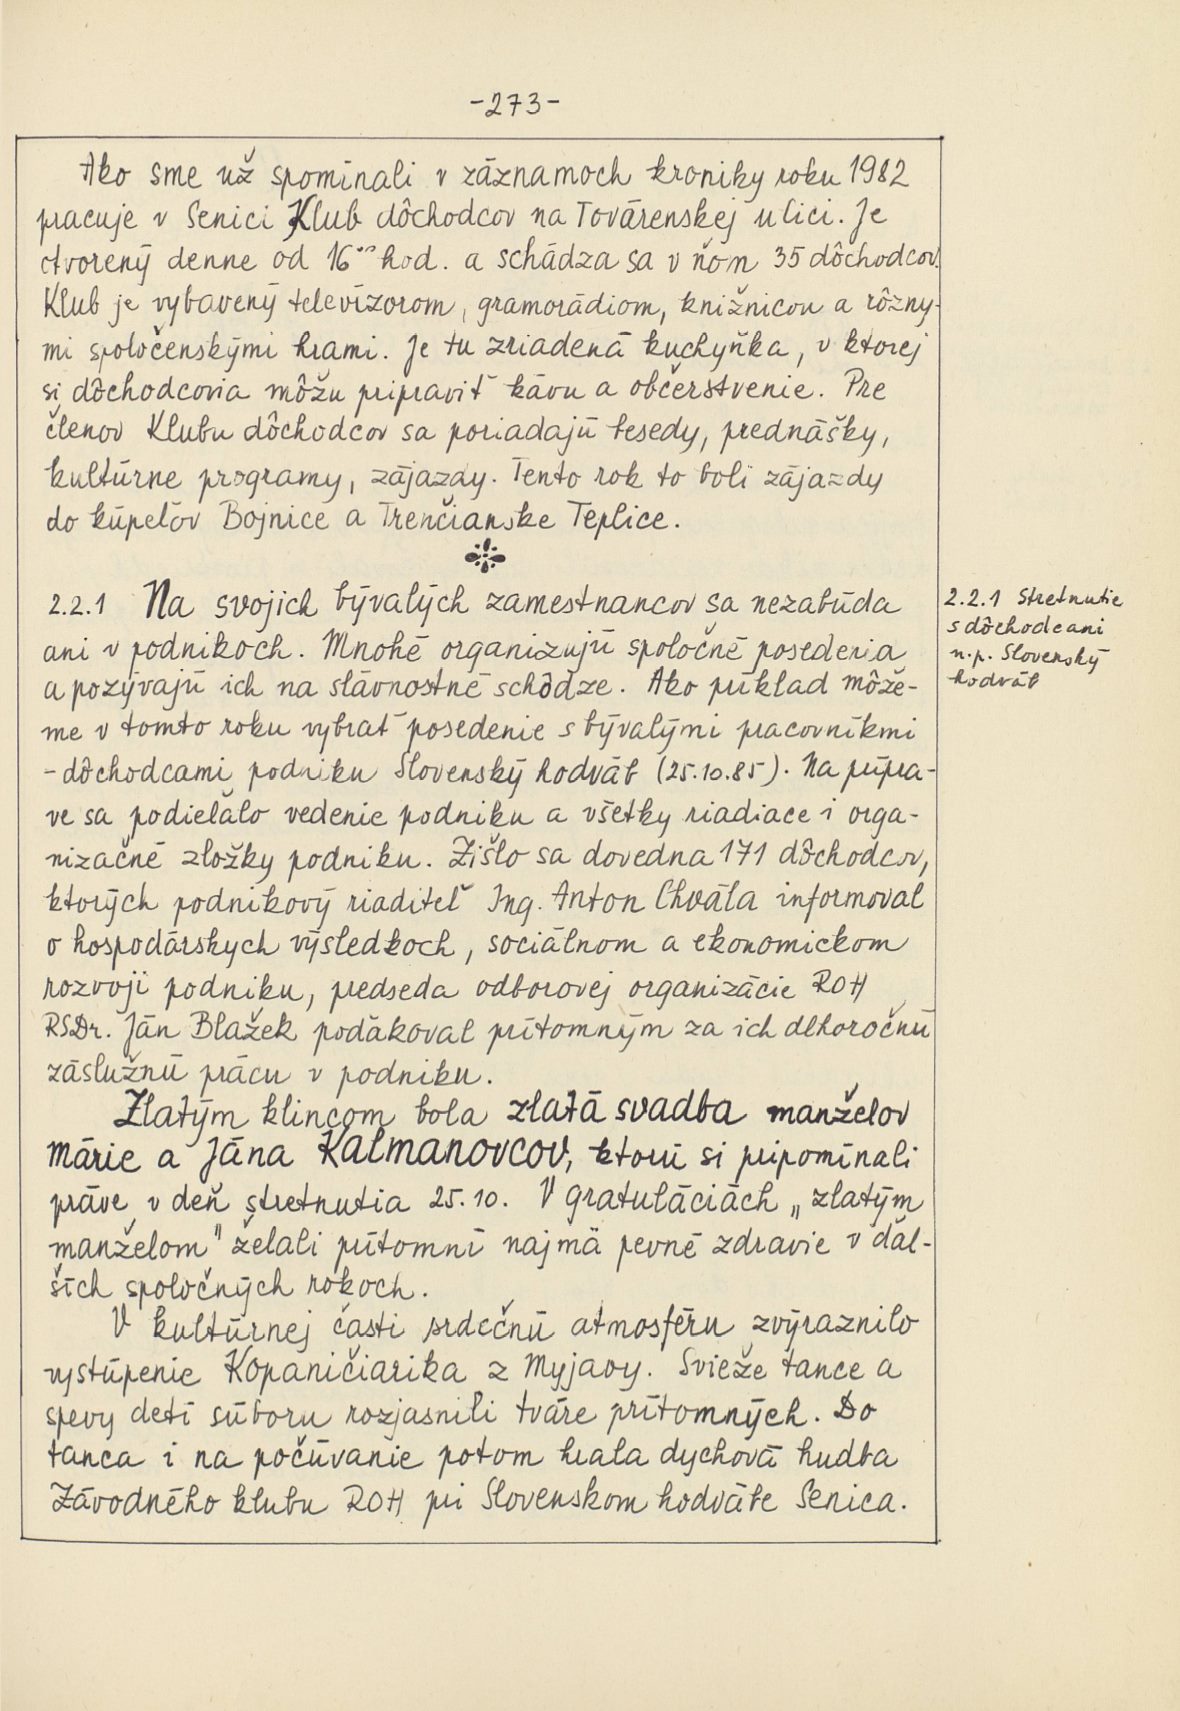 -273-
Ako sme už spomínali v záznamoch kroniky roku 1982
pracuje v Senici Klub dôchodcov na Továrenskej ulici. Je
otvorený denne od 16⁰⁰ hod. a schádza sa v ňom 35 dôchodcov.
Klub je vybavený televízorom, gramorádiom, knižnicou a rôzny-
mi spoločenskými hrami. Je tu zriadená kuchyňka, v ktorej
si dôchodcovia môžu pripraviť kávu a občerstvenie. Pre
členov Klubu dôchodcov sa poriadajú besedy, prednášky,
kultúrne programy, zájazdy. Tento rok to boli zájazdy
do kúpeľov Bojnice a Trenčianske Teplice.
2.2.1 Na svojich bývalých zamestnancov sa nezabúda
ani v podnikoch. Mnohé organizujú spoločné posedenia
a pozývajú ich na slávnostné schôdze. Ako príklad môže-
me v tomto roku vybrať posedenie s bývalými pracovníkmi
- dôchodcami podniku Slovenský hodváb (25.10.85). Na prípra-
ve sa podieľalo vedenie podniku a všetky riadiace i orga-
nizačné zložky podniku. Zišlo sa dovedna 171 dôchodcov,
ktorých podnikový riaditeľ Ing. Anton Chvála informoval
o hospodárskych výsledkoch, sociálnom a ekonomickom
rozvoji podniku, predseda odborovej organizácie ROH
RSDr. Ján Blažek poďakoval prítomným za ich dlhoročnú
záslužnú prácu v podniku.
Zlatým klincom bola zlatá svadba manželov
Márie a Jána Kalmanovcov, ktorú si pripomínali
práve v deň stretnutia 25.10. V gratuláciách „zlatým
manželom" želali prítomní najmä pevné zdravie v ďal-
ších spoločných rokoch.
V kultúrnej časti srdečnú atmosféru zvýraznilo
vystúpenie Kopaničiarika z Myjavy. Svieže tance a
spevy detí súboru rozjasnili tváre prítomných. Do
tanca i na počúvanie potom hrala dychová hudba
Závodného klubu ROH pri Slovenskom hodvábe Senica.
2.2.1 Stretnutie
s dôchodcami
n.p. Slovenský
hodváb